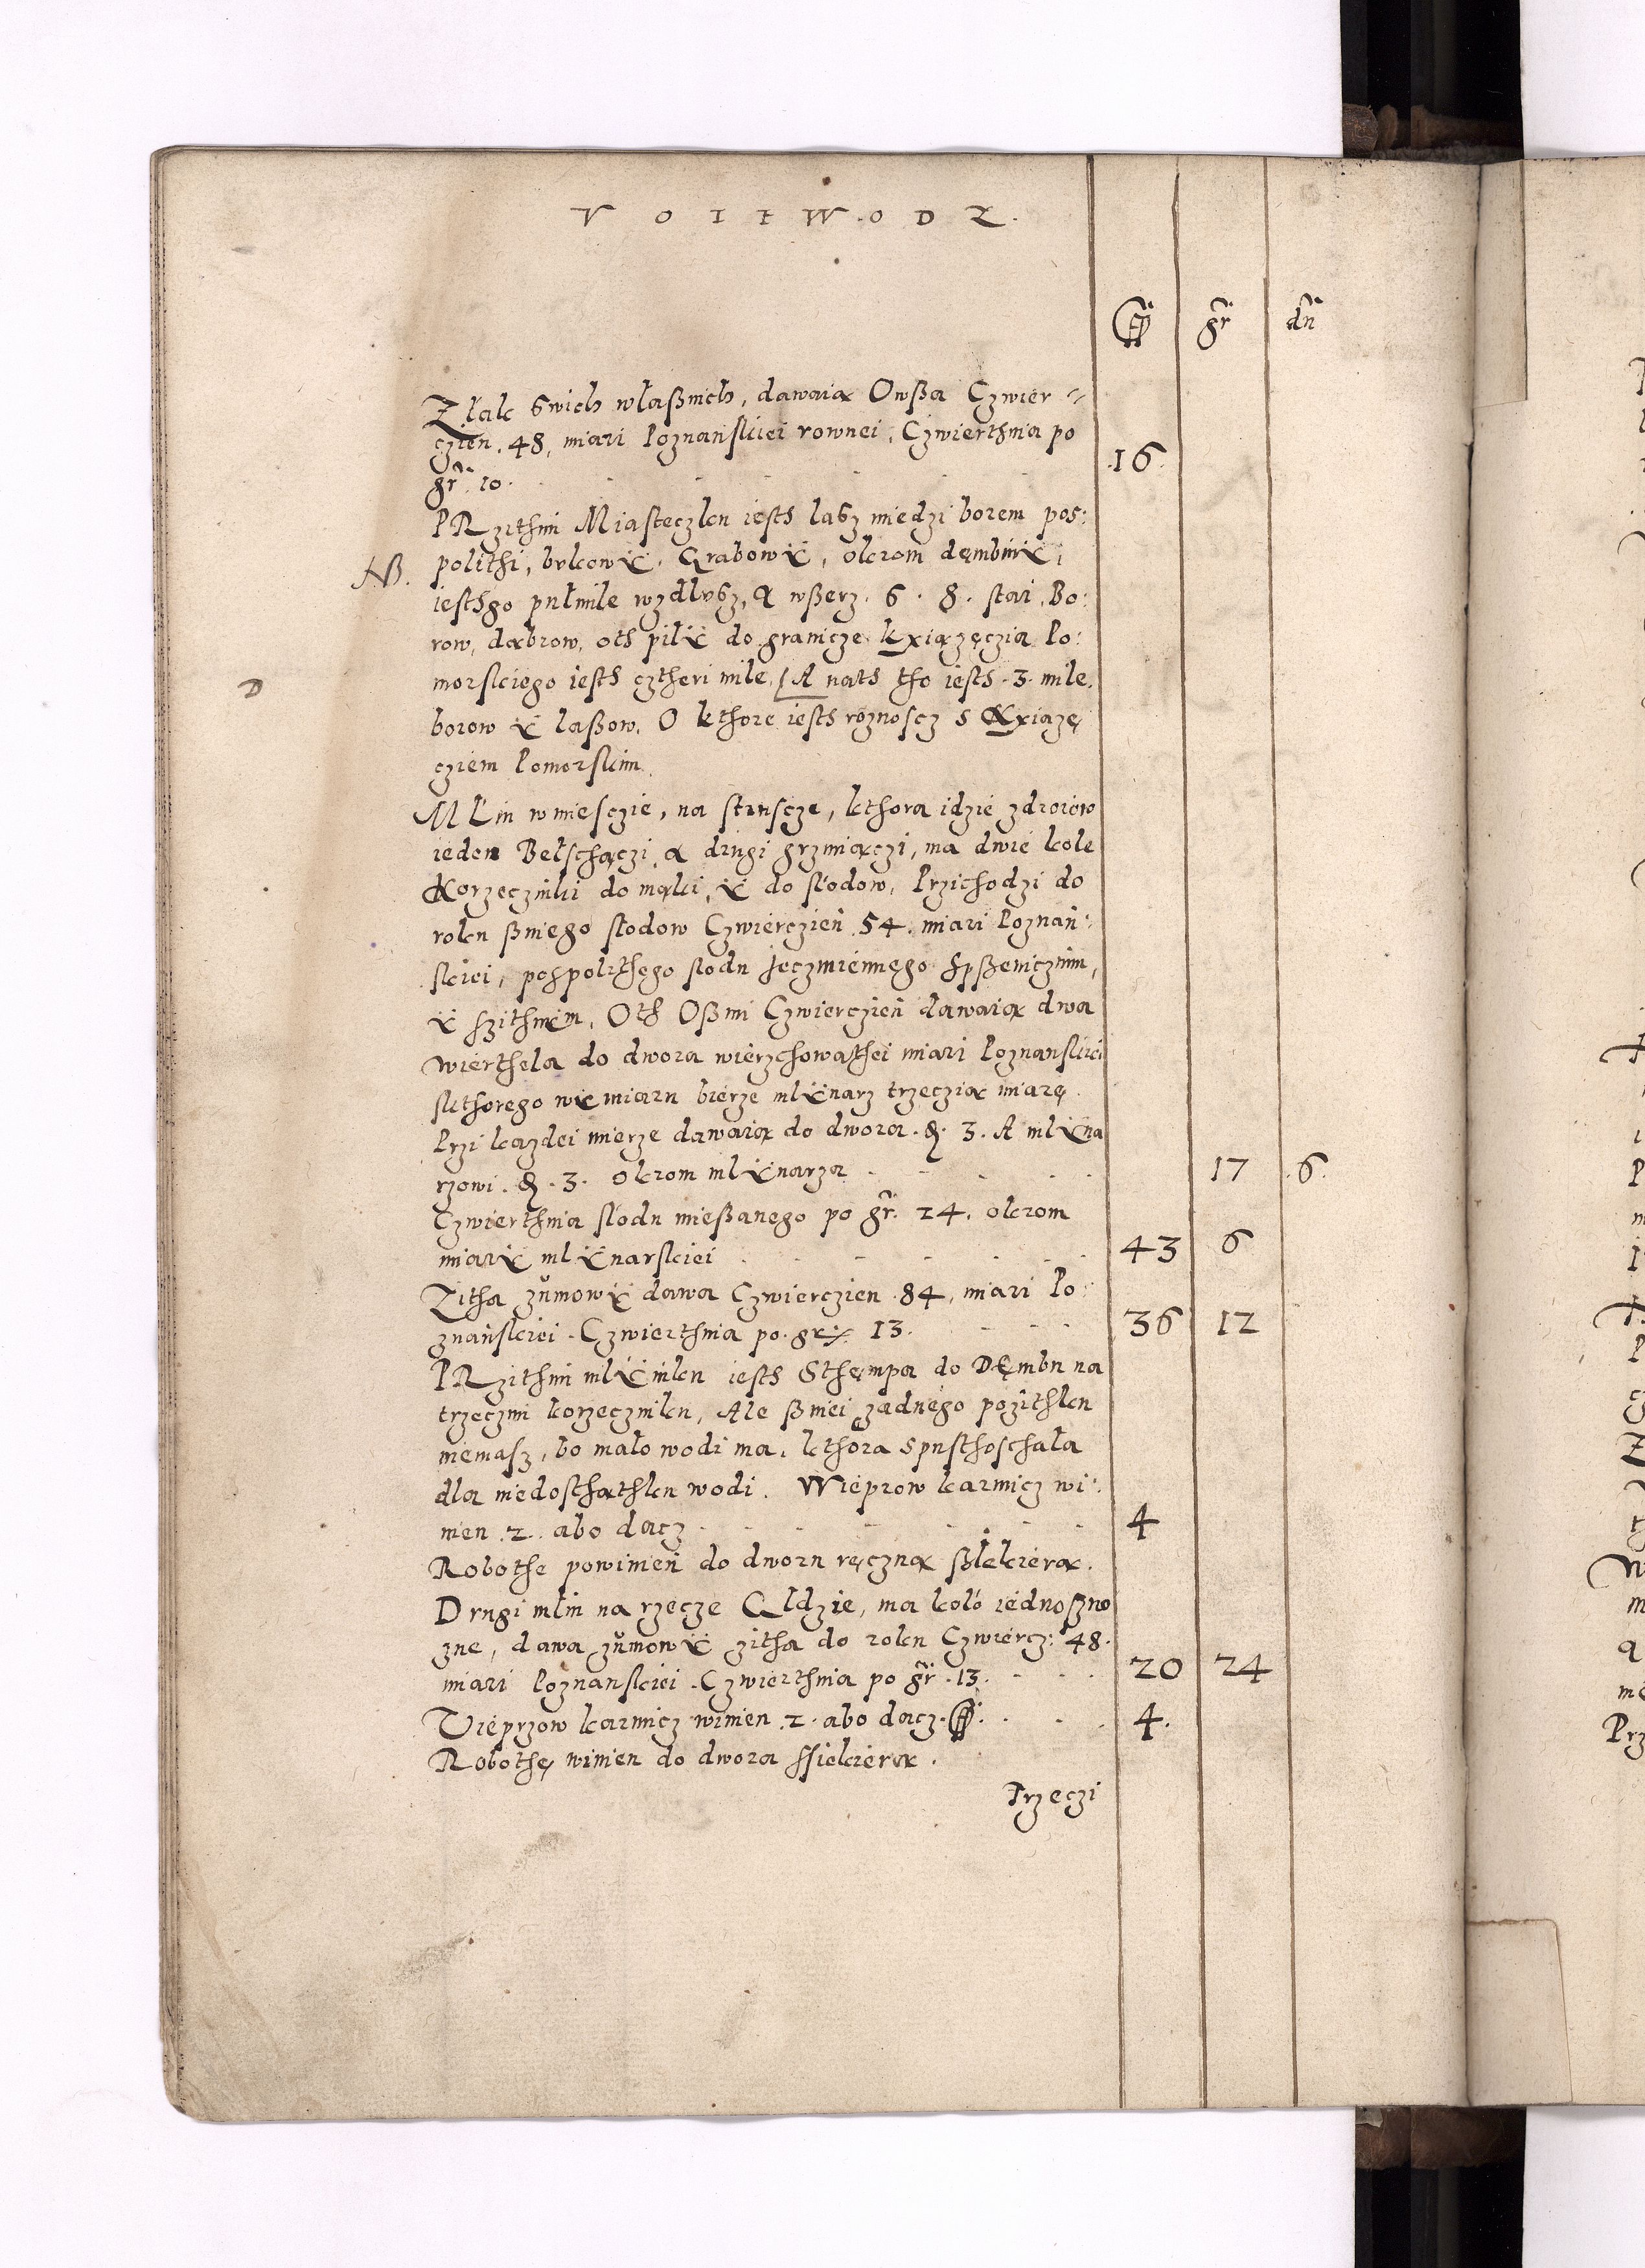 V O I E W O D Z.
fl gr dn
Z łąk swich własznich, dawaią Owsza Czwier=
czien. 48, miari Poznanskiei rownei, Czwierthnia po
gr. 10. 16.
PRzithim Miasteczku iesth lasz miedzi borem pos:
NB. polithi, bukowÿ, Grabowÿ, okrom dęmbinÿ,
iesthgo pułmile wzdłusz, A wszerz. 6. 8. stai, Bo:
row, dąbrow, oth pilÿ do granicze kxiązęczia Po:
D morskiego iesth cztheri mile, A nath tho iesth. 3. mile.
borow ÿ laszow, O kthore iesth roznoscz s Kxiązę
cziem Pomorskim.
MŁin w miesczie, na strusze, kthora idzie zdroiow
ieden Bełschączi, a drugi grzmiączi, ma dwie kole
Korzeczniki do mąki, ÿ do słodow, Przichodzi do
roku szniego słodow Czwierczien 54. miari Poznan:
skiei, pospolithego słodu jeczmiennego spszenicznim,
ÿ szithnim, Oth Oszmi Czwierczien dawaią dwa
wierthela do dwora wierzchowathei miari Poznanskiei
skthorego wÿmiaru bierze mlÿnarz trzeczią miarę.
Przi kazdei mierze dawaią do dwora. 3. A mlÿna
rzowi. 3. okrom mlÿnarza 17 6.
Czwierthnia słodu mieszanego po gr. 24. okrom
miarÿ mlÿnarskiei 43 6
Zitha zumowÿ dawa Czwierczien. 84, miari Po:
znanskiei. Czwierthnia po. gr. 13. 36 12
PRzithim mlÿniku iesth Sthęmpa do Dęmbu na
trzeczim korzeczniku, Ale szniei zadnego pozithku
niemasz, bo mało wodi ma, kthora spusthoschała
dla niedosthathku wodi. Wieprow karmicz wi:
nien. 2. abo dacz 4
Robothe powinien do dworu ręczną szÿekierą.
Drugi młin na rzecze Głdzie, ma koło iednoszno
zne, dawa zumowÿ zitha do roku Czwiercz: 48.
miari Poznanskiei. Czwierthnia po gr. 13. 20 24
Vieprzow karmicz winien. 2. abo dacz. fl. 4.
Robothę winien do dwora ssiekierą.
Trzeczi